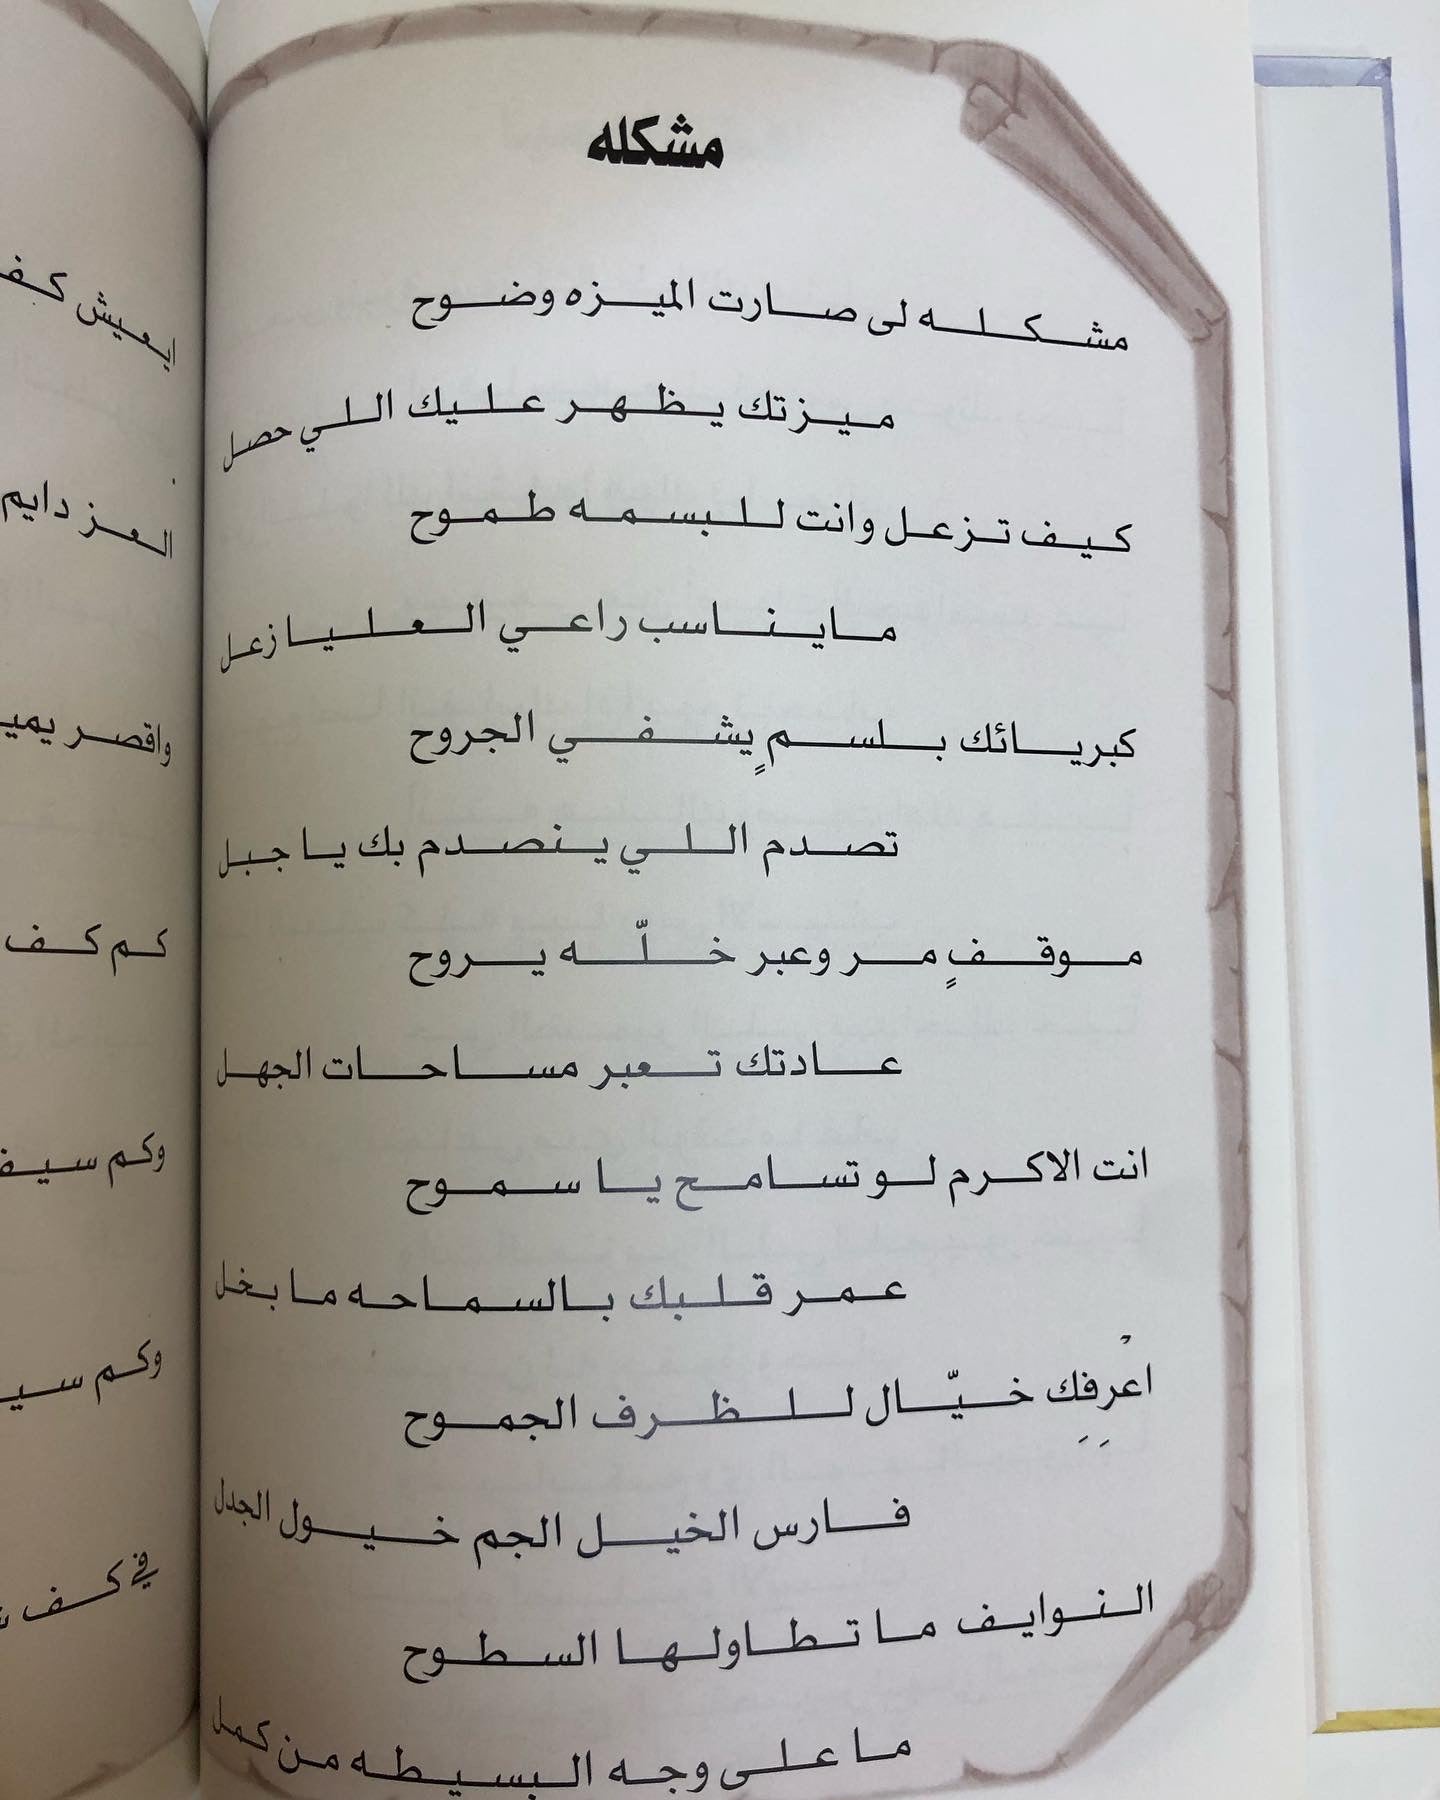 مشكله
مشكله لى صارت الميزه وضوح
ميزتك يظهر عليك اللي حصل
كيف تزعل وانت للبسمه طموح
مايناسب راعي العليا زعل
كبريائك بلسمٍ يشفي الجروح
تصدم اللي ينصدم بك يا جبل
موقفٍ مر وعبر خلّه يروح
عادتك تعبر مساحات الجهل
انت الاكرم لو تسامح يا سموح
عمر قلبك بالسماحه ما بخل
اعْرِفِك خيّال للظرف الجموح
فارس الخيل الجم خيول الجدل
النوايف ما تطاولها السطوح
ما على وجه البسيطه من كمل
ايعيش كف
العز دايم
واقصر يمي
كم كف
وكم سيف
وكم سي
في كف